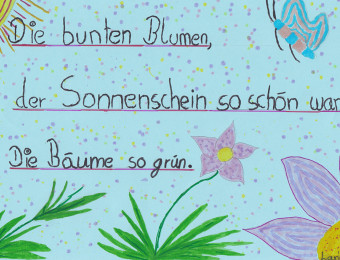 Die bunten Blumen,
der Sonnenschein so schön war
Die Bäume so grün.